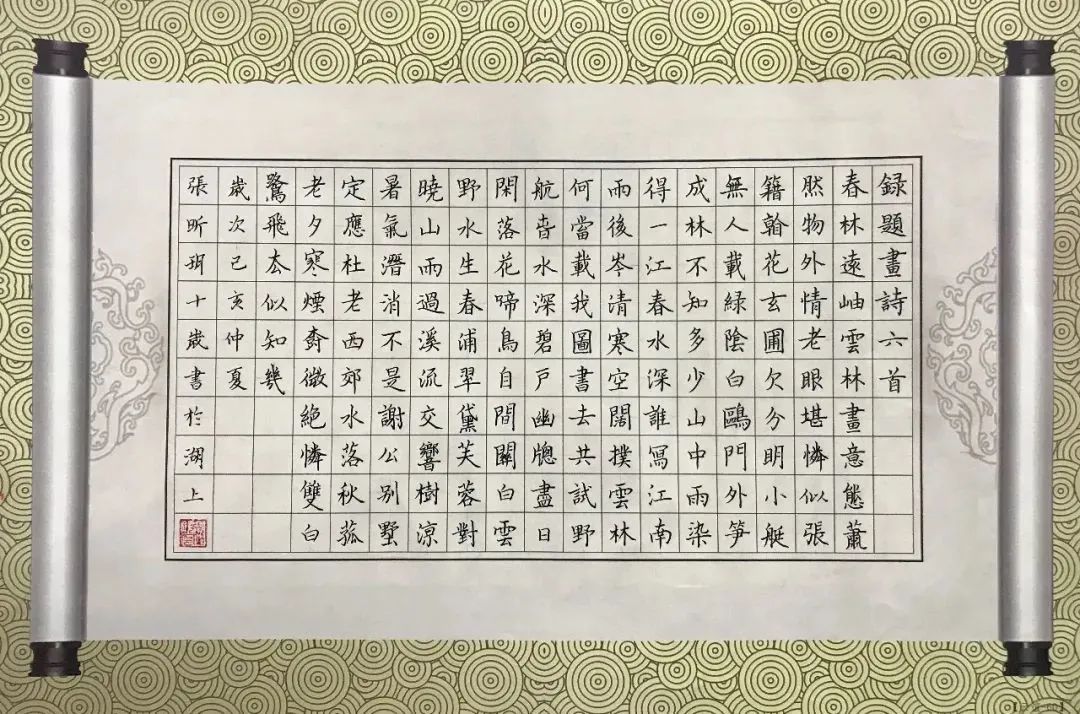 録題畫詩六首
春林遠岫雲林畫意態蕭
然物外情老眼堪憐似張
籍翰花玄圃欠分明小艇
無人載緑陰白鷗門外笋
成林不知多少山中雨染
得一江春水深誰冩江南
雨後岑清寒空闊撲雲林
何當載我圖書去共試野
航音水深碧戸幽牕盡日
閑落花啼鳥自間關白雲
野水生春浦翠黛芙蓉對
曉山雨過溪流交響樹涼
暑氣潛消不是謝公别墅
定應杜老西郊水落秋菰
老夕寒煙微絶憐雙白
驚飛厺似知幾
歲次己亥仲夏
張昕玥十歲書於湖上